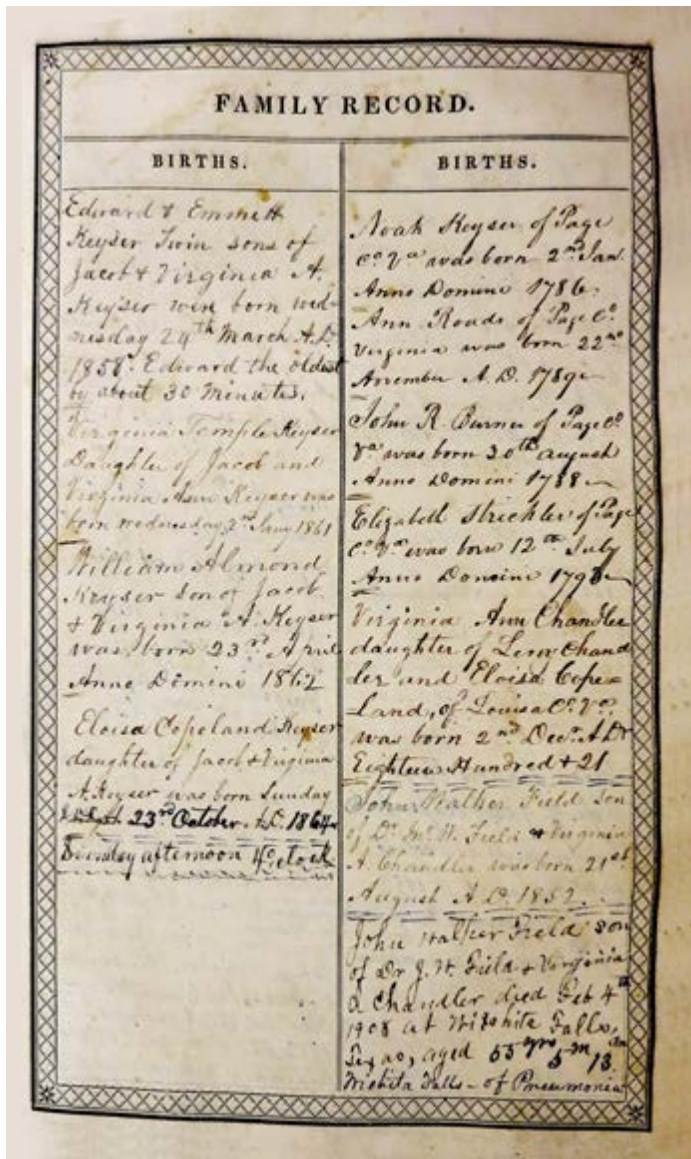 FAMILY RECORD.
BIRTHS.
Edward & Emmett
Keyser Twin sons of
Jacob & Virginia A.
Keyser were born wed-
nesday 24th March A.D.
1858. Edward the oldest
by about 30 Minutes.
Virginia Temple Keyser
Daughter of Jacob and
Virginia Ann Keyser was
born wednesday 2nd Jany 1861
William Almond
Keyser son of Jacob
& Virginia A. Keyser
was born 23rd April
Anno Domini 1862
Eloisa Copeland Keyser
daughter of Jacob & Virginia
A. Keyser was born Sunday
23rd October A.D. 1864
Sunday afternoon 4 o,clock
BIRTHS.
Noah Keyser of Page
Co. Va was born 2nd Jan.
Anno Domini 1786.
Ann Roads of Page Co.
Virginia was born 22nd
November A.D. 1789
John R. Burner of Page Co.
Va was born 30th august
Anno Domini 1788
Elizabeth Strickler of Page
Co. Va was born 12th July
Anno Domini 1798
Virginia Ann Chandler
daughter of Leroy Chand
ler and Eloisa Cope=
Land, of Louisa Co. Va.
was born 2nd Decr. A.D.
Eighteen Hundred & 21
John Walker Field son
of Dr. Jno. W. Field & Virginia
A. Chandler was born 21st
August A.D. 1852.
John Walker Field son
of Dr J. W. Field & Virginia
Chandler died Feb 4th
1908 at Wishita Falls,
Texas, aged 55 yrs 5 m 13
Wichita Falls - of Pneumonia